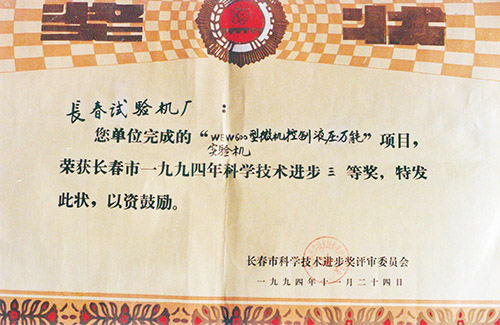 奖状
长春试验机厂：
您单位完成的“WEW600型微机控制液压万能”项目，
实验机
荣获长春市一九九四年科学技术进步三等奖，特发
此状，以资鼓励。
长春市科学技术进步奖评审委员会
一九九四年十一月二十四日